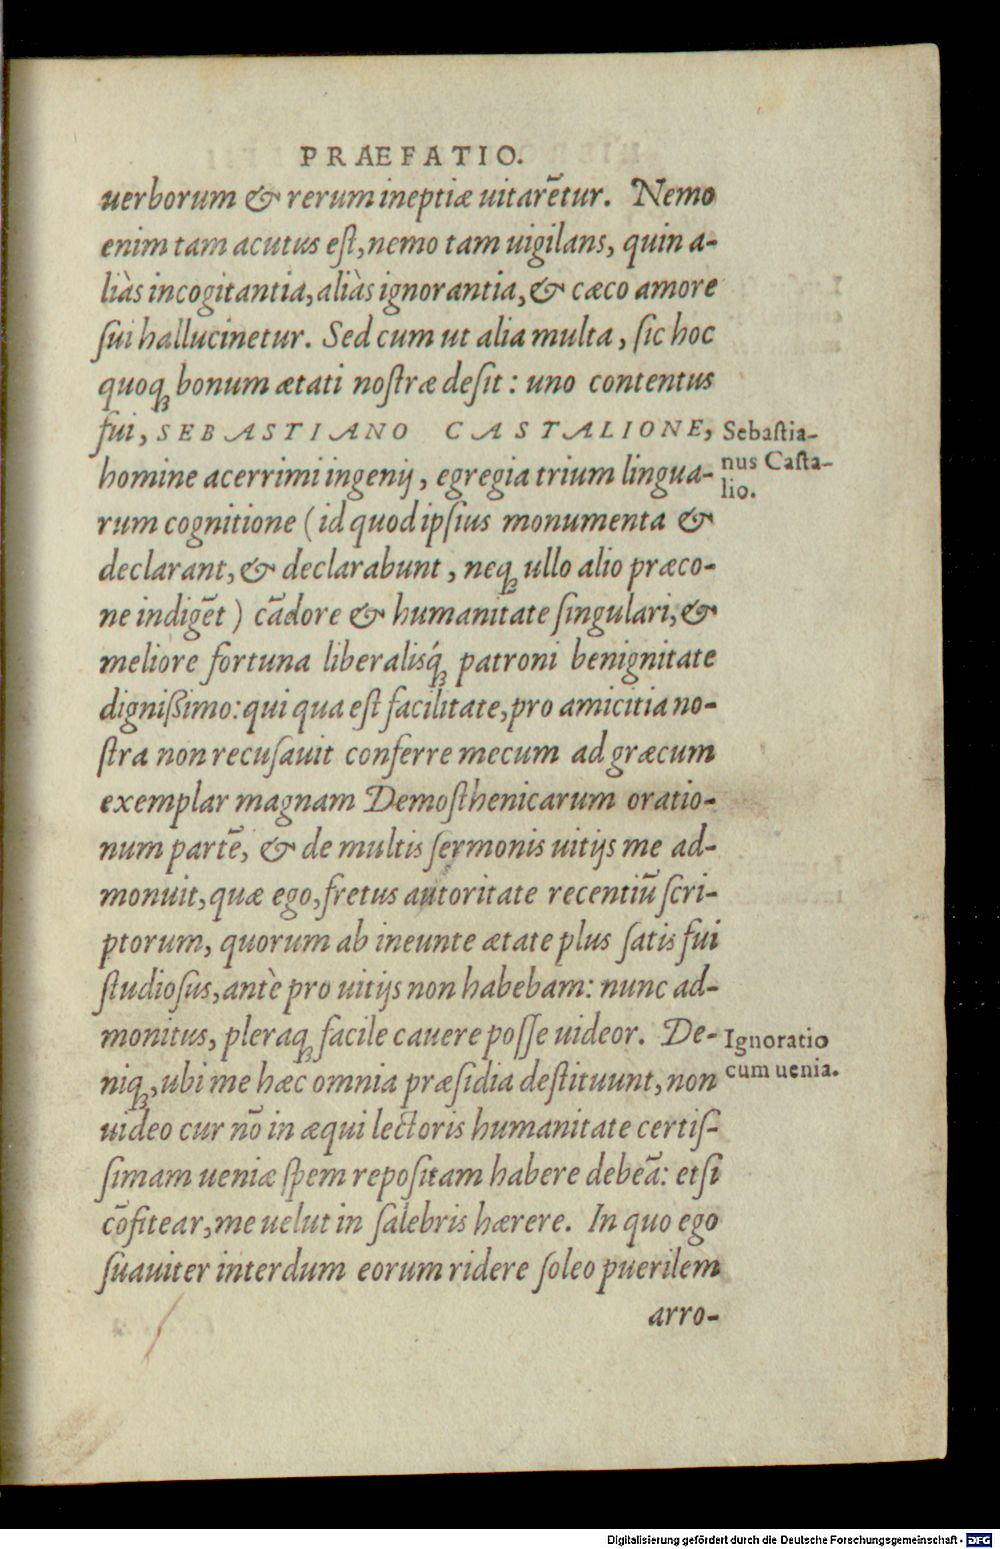 PRAEFATIO.
uerborum & rerum ineptiæ uitarẽtur. Nemo
enim tam acutus eſt, nemo tam uigilans, quin a-
liàs incogitantia, aliàs ignorantia, & cæco amore
ſui hallucinetur. Sed cum ut alia multa, ſic hoc
quoq; bonum ætati noſtræ deſit: uno contentus
fui, SEBASTIANO CASTALIONE,
Sebaſtia-
nus Caſta-
lio.
homine acerrimi ingenij, egregia trium lingua-
rum cognitione (id quod ipſius monumenta &
declarant, & declarabunt, neq; ullo alio præco-
ne indigẽt) cãdore & humanitate ſingulari, &
meliore fortuna liberalisq́; patroni benignitate
digniſſimo: qui qua eſt facilitate, pro amicitia no-
ſtra non recuſauit conferre mecum ad græcum
exemplar magnam Demoſthenicarum oratio-
num partẽ, & de multis ſermonis uitijs me ad-
monuit, quæ ego, fretus autoritate recentiũ ſcri-
ptorum, quorum ab ineunte ætate plus ſatis fui
ſtudioſus, antè pro uitijs non habebam: nunc ad-
monitus, pleraq; facile cauere poſſe uideor. De-
Ignoratio
cum uenia.
niq;, ubi me hæc omnia præſidia deſtituunt, non
uideo cur nõ in æqui lectoris humanitate certiſ-
ſimam ueniæ ſpem repoſitam habere debeã: etſi
cõfitear, me uelut in ſalebris hærere. In quo ego
ſuauiter interdum eorum ridere ſoleo puerilem
arro-
Digitalisierung gefördert durch die Deutsche Forschungsgemeinschaft - DFG